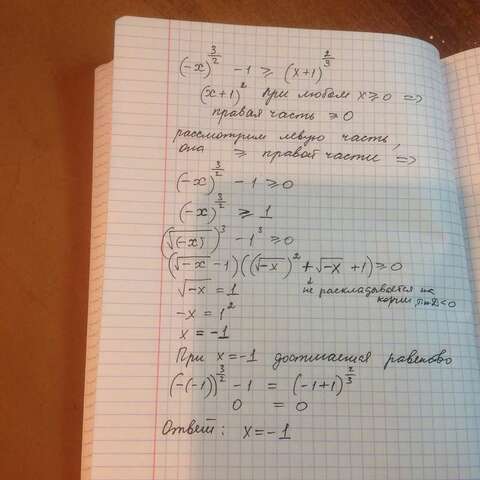 (-x)^{3/2} - 1 ≥ (x+1)^{2/3}
(x+1)^2 при любом x ≥ 0 =>
правая часть ≥ 0
рассмотрим левую часть,
она ≥ правой части =>
(-x)^{3/2} - 1 ≥ 0
(-x)^{3/2} ≥ 1
(√(-x))^3 - 1^3 ≥ 0
(√-x - 1)((√-x)^2 + √-x + 1) ≥ 0
√-x = 1
не раскладывается на
корни, т.к D < 0
-x = 1^2
x = -1
При x = -1 достигается равенство
(-(-1))^{3/2} - 1 = (-1+1)^{2/3}
0 = 0
Ответ: x = -1